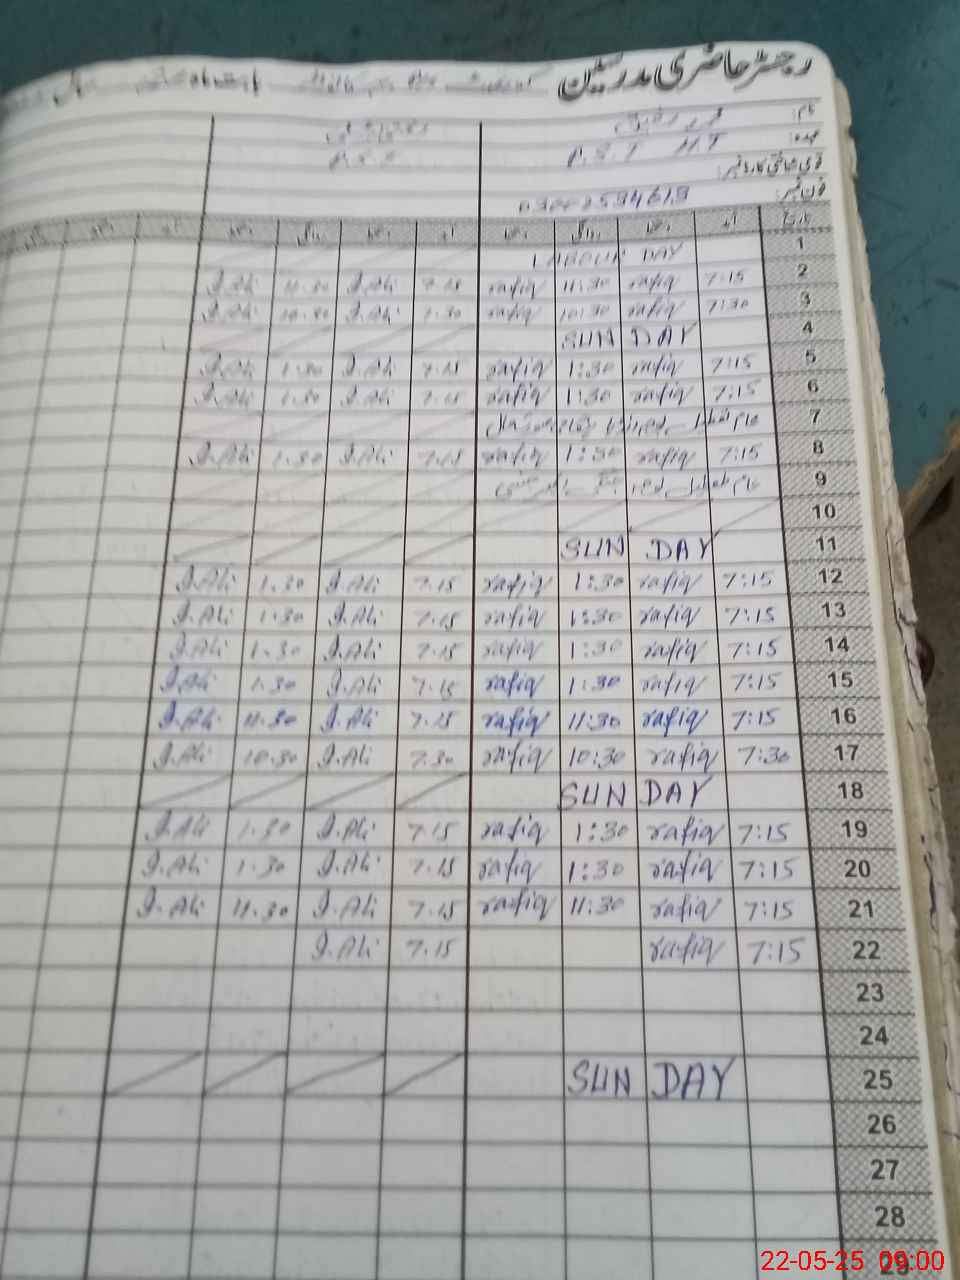 رجسٹر حاضری مدرسین
نام:
عہدہ: P.S.T H.T
قومی شناختی کارڈ نمبر:
فون نمبر:
تاریخ آمد دستخط روانگی دستخط آمد دستخط روانگی دستخط
1 LABOUR DAY
2 7:15 rafiq 11:30 rafiq 7.15 I.Ali 11.30 I.Ali
3 7:30 rafiq 10:30 rafiq 7.30 I.Ali 10.30 I.Ali
4 SUN DAY
5 7:15 rafiq 1:30 rafiq 7.15 I.Ali 1.30 I.Ali
6 7:15 rafiq 1:30 rafiq 7.15 I.Ali 1.30 I.Ali
7 عام تعطیل
8 7:15 rafiq 1:30 rafiq 7.15 I.Ali 1.30 I.Ali
9 عام تعطیل
10
11 SUN DAY
12 7:15 rafiq 1:30 rafiq 7.15 I.Ali 1.30 I.Ali
13 7:15 rafiq 1:30 rafiq 7.15 I.Ali 1.30 I.Ali
14 7:15 rafiq 1:30 rafiq 7.15 I.Ali 1.30 I.Ali
15 7:15 rafiq 1:30 rafiq 7.15 I.Ali 1.30 I.Ali
16 7:15 rafiq 11:30 rafiq 7.15 I.Ali 11.30 I.Ali
17 7:30 rafiq 10:30 rafiq 7.30 I.Ali 10.30 I.Ali
18 SUN DAY
19 7:15 rafiq 1:30 rafiq 7.15 I.Ali 1.30 I.Ali
20 7:15 rafiq 1:30 rafiq 7.15 I.Ali 1.30 I.Ali
21 7:15 rafiq 11:30 rafiq 7.15 I.Ali 11.30 I.Ali
22 7:15 rafiq 7.15 I.Ali
23
24
25 SUN DAY
26
27
28
29
22-05-25 09:00